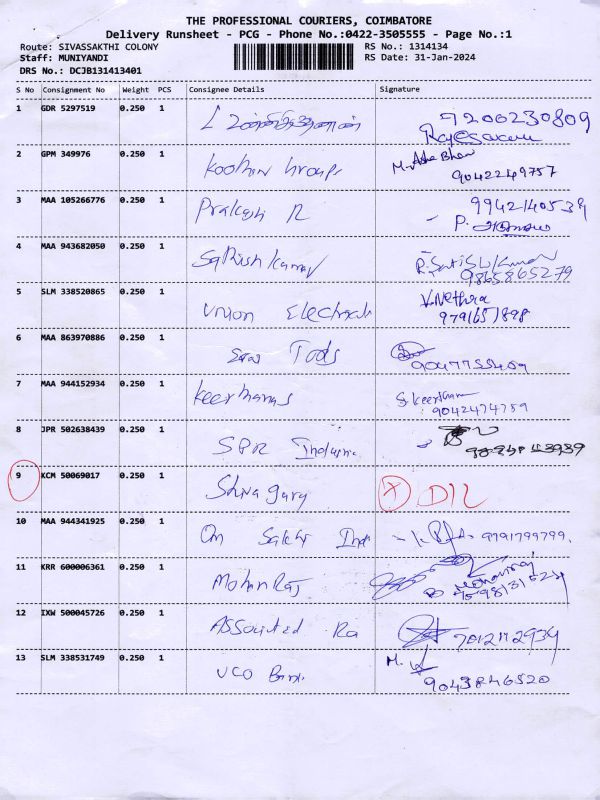 THE PROFESSIONAL COURIERS, COIMBATORE
Delivery Runsheet - PCG - Phone No.:0422-3505555 - Page No.:1
Route: SIVASSAKTHI COLONY
RS No.: 1314134
Staff: MUNIYANDI
RS Date: 31-Jan-2024
DRS No.: DCJB131413401
S No Consignment No Weight PCS Consignee Details Signature
1 GDR 5297519 0.250 1 9200230809
2 GPM 349976 0.250 1 M. Asha
9042249757
3 MAA 105266776 0.250 1 Prakash R 9942140539
P.
4 MAA 943682050 0.250 1 Sathish Kumar R. Satish Kumar
9865865279
5 SLM 338520865 0.250 1 Union Electricals V. Nethra
9791651898
6 MAA 863970886 0.250 1 Tools
7 MAA 944152934 0.250 1 Keerthanas S. Keerthana
9042474759
8 JPR 502638439 0.250 1 SBR
9 KCM 50069017 0.250 1 Shiva guru X D/L
10 MAA 944341925 0.250 1 Om Sakthi Ind 9791799799
11 KRR 600006361 0.250 1 MohanRaj Mohanraj
12 IXW 500045726 0.250 1 Associated Ra
13 SLM 338531749 0.250 1 UCO Bank M.
9043846520